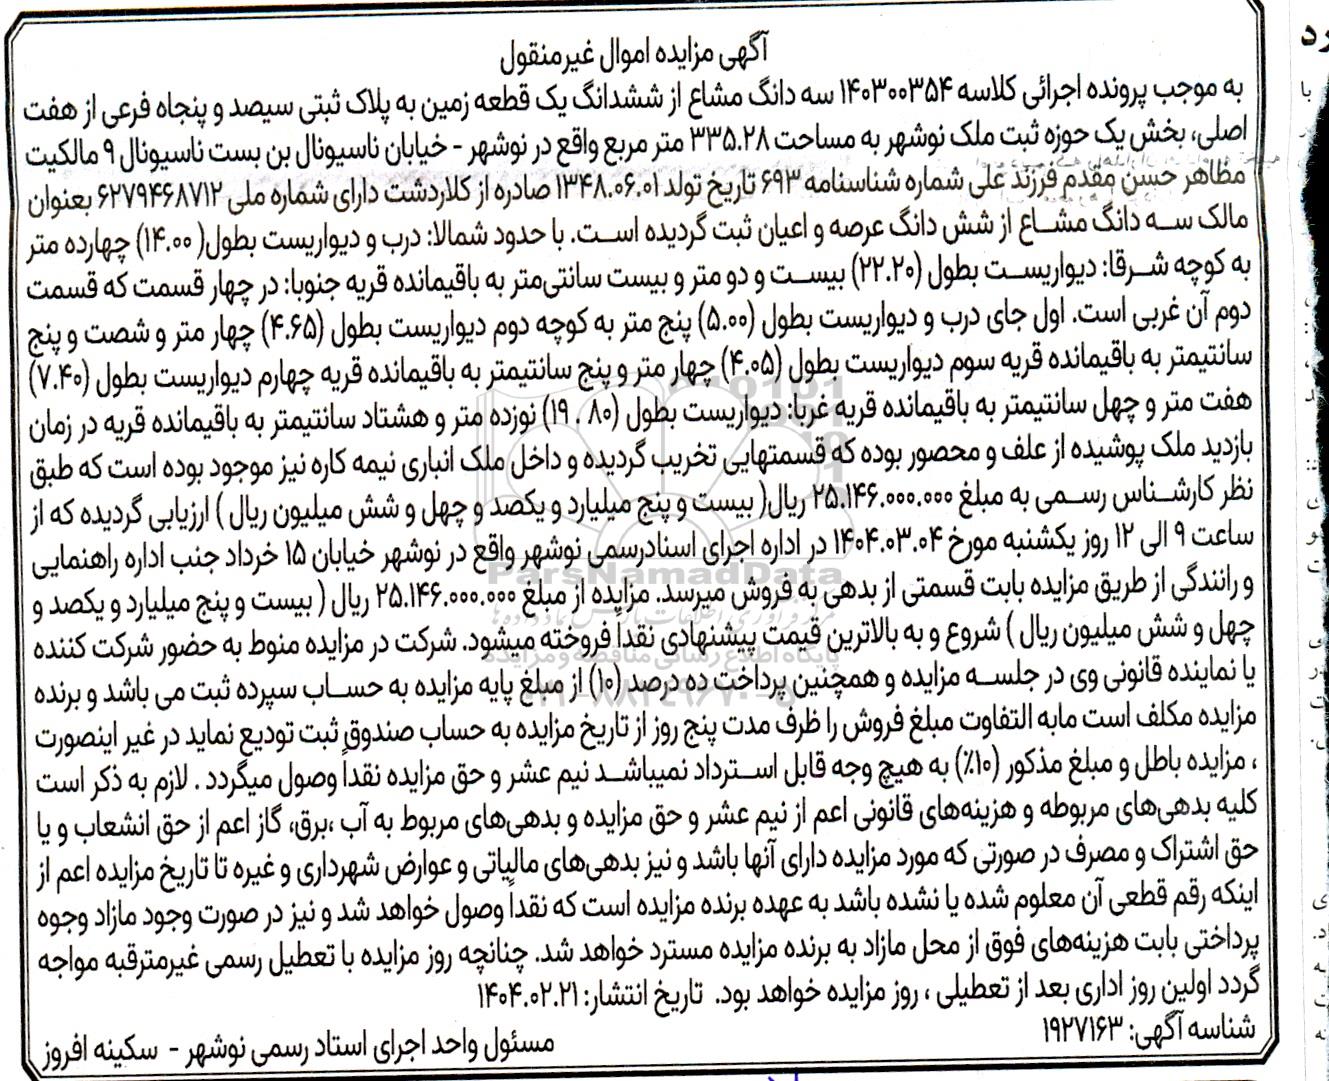 آگهی مزایده اموال غیرمنقول
به موجب پرونده اجرائی کلاسه ۱۴۰۳۰۰۳۵۴ سه دانگ مشاع از ششدانگ یک قطعه زمین به پلاک ثبتی سیصد و پنجاه فرعی از هفت
اصلی، بخش یک حوزه ثبت ملک نوشهر به مساحت ۳۳۵.۲۸ متر مربع واقع در نوشهر - خیابان ناسیونال بن بست ناسیونال ۹ مالکیت
مظاهر حسن مقدم فرزند علی شماره شناسنامه ۶۹۳ تاریخ تولد ۱۳۴۸.۰۶.۰۱ صادره از کلاردشت دارای شماره ملی ۶۲۷۹۴۶۸۷۱۲ بعنوان
مالک سه دانگ مشاع از شش دانگ عرصه و اعیان ثبت گردیده است. با حدود شمالا: درب و دیواریست بطول( ۱۴.۰۰) چهارده متر
به کوچه شرقا: دیواریست بطول (۲۲.۲۰) بیست و دو متر و بیست سانتی‌متر به باقیمانده قریه جنوبا: در چهار قسمت که قسمت
دوم آن غربی است. اول جای درب و دیواریست بطول (۵.۰۰) پنج متر به کوچه دوم دیواریست بطول (۴.۶۵) چهار متر و شصت و پنج
سانتیمتر به باقیمانده قریه سوم دیواریست بطول (۴.۰۵) چهار متر و پنج سانتیمتر به باقیمانده قریه چهارم دیواریست بطول (۷.۴۰)
هفت متر و چهل سانتیمتر به باقیمانده قریه غربا: دیواریست بطول (۸۰ . ۱۹) نوزده متر و هشتاد سانتیمتر به باقیمانده قریه در زمان
بازدید ملک پوشیده از علف و محصور بوده که قسمتهایی تخریب گردیده و داخل ملک انباری نیمه کاره نیز موجود بوده است که طبق
نظر کارشناس رسمی به مبلغ ۲۵.۱۴۶.۰۰۰.۰۰۰ ریال( بیست و پنج میلیارد و یکصد و چهل و شش میلیون ریال ) ارزیابی گردیده که از
ساعت ۹ الی ۱۲ روز یکشنبه مورخ ۱۴۰۴.۰۳.۰۴ در اداره اجرای اسنادرسمی نوشهر واقع در نوشهر خیابان ۱۵ خرداد جنب اداره راهنمایی
و رانندگی از طریق مزایده بابت قسمتی از بدهی به فروش میرسد. مزایده از مبلغ ۲۵.۱۴۶.۰۰۰.۰۰۰ ریال ( بیست و پنج میلیارد و یکصد و
چهل و شش میلیون ریال ) شروع و به بالاترین قیمت پیشنهادی نقداً فروخته میشود. شرکت در مزایده منوط به حضور شرکت کننده
یا نماینده قانونی وی در جلسه مزایده و همچنین پرداخت ده درصد (۱۰) از مبلغ پایه مزایده به حساب سپرده ثبت می باشد و برنده
مزایده مکلف است مابه التفاوت مبلغ فروش را ظرف مدت پنج روز از تاریخ مزایده به حساب صندوق ثبت تودیع نماید در غیر اینصورت
، مزایده باطل و مبلغ مذکور (۱۰٪) به هیچ وجه قابل استرداد نمیباشد نیم عشر و حق مزایده نقداً وصول میگردد . لازم به ذکر است
کلیه بدهی‌های مربوطه و هزینه‌های قانونی اعم از نیم عشر و حق مزایده و بدهی‌های مربوط به آب ،برق، گاز اعم از حق انشعاب و یا
حق اشتراک و مصرف در صورتی که مورد مزایده دارای آنها باشد و نیز بدهی‌های مالیاتی و عوارض شهرداری و غیره تا تاریخ مزایده اعم از
اینکه رقم قطعی آن معلوم شده یا نشده باشد به عهده برنده مزایده است که نقداً وصول خواهد شد و نیز در صورت وجود مازاد وجوه
پرداختی بابت هزینه‌های فوق از محل مازاد به برنده مزایده مسترد خواهد شد. چنانچه روز مزایده با تعطیل رسمی غیرمترقبه مواجه
گردد اولین روز اداری بعد از تعطیلی ، روز مزایده خواهد بود. تاریخ انتشار: ۱۴۰۴.۰۲.۲۱
شناسه آگهی: ۱۹۲۷۱۶۳
مسئول واحد اجرای استاد رسمی نوشهر - سکینه افروز
ParsNamadData
پایگاه اطلاع رسانی مناقصه و مزایده